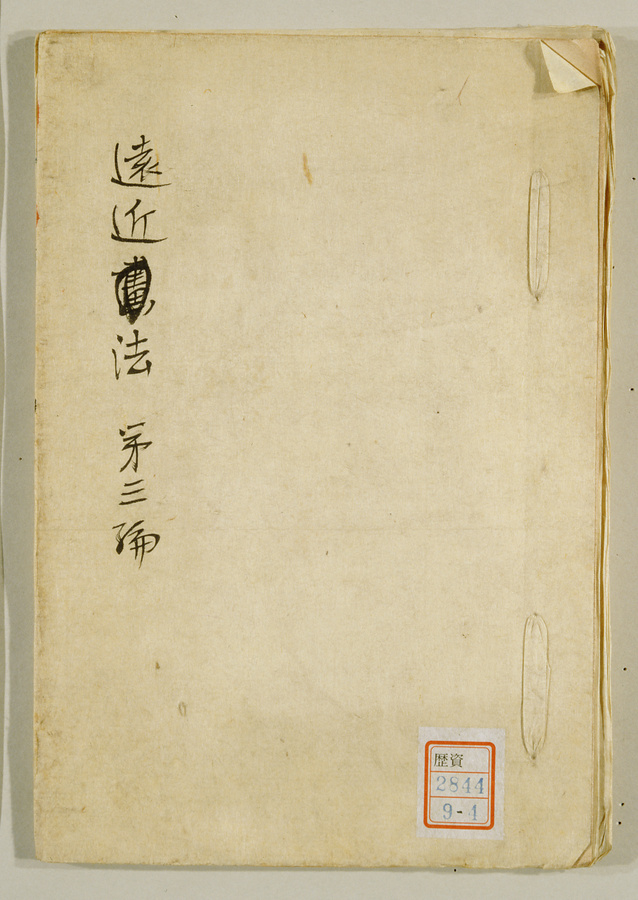 遠近畫法 第三編
歴資
2844
9-4